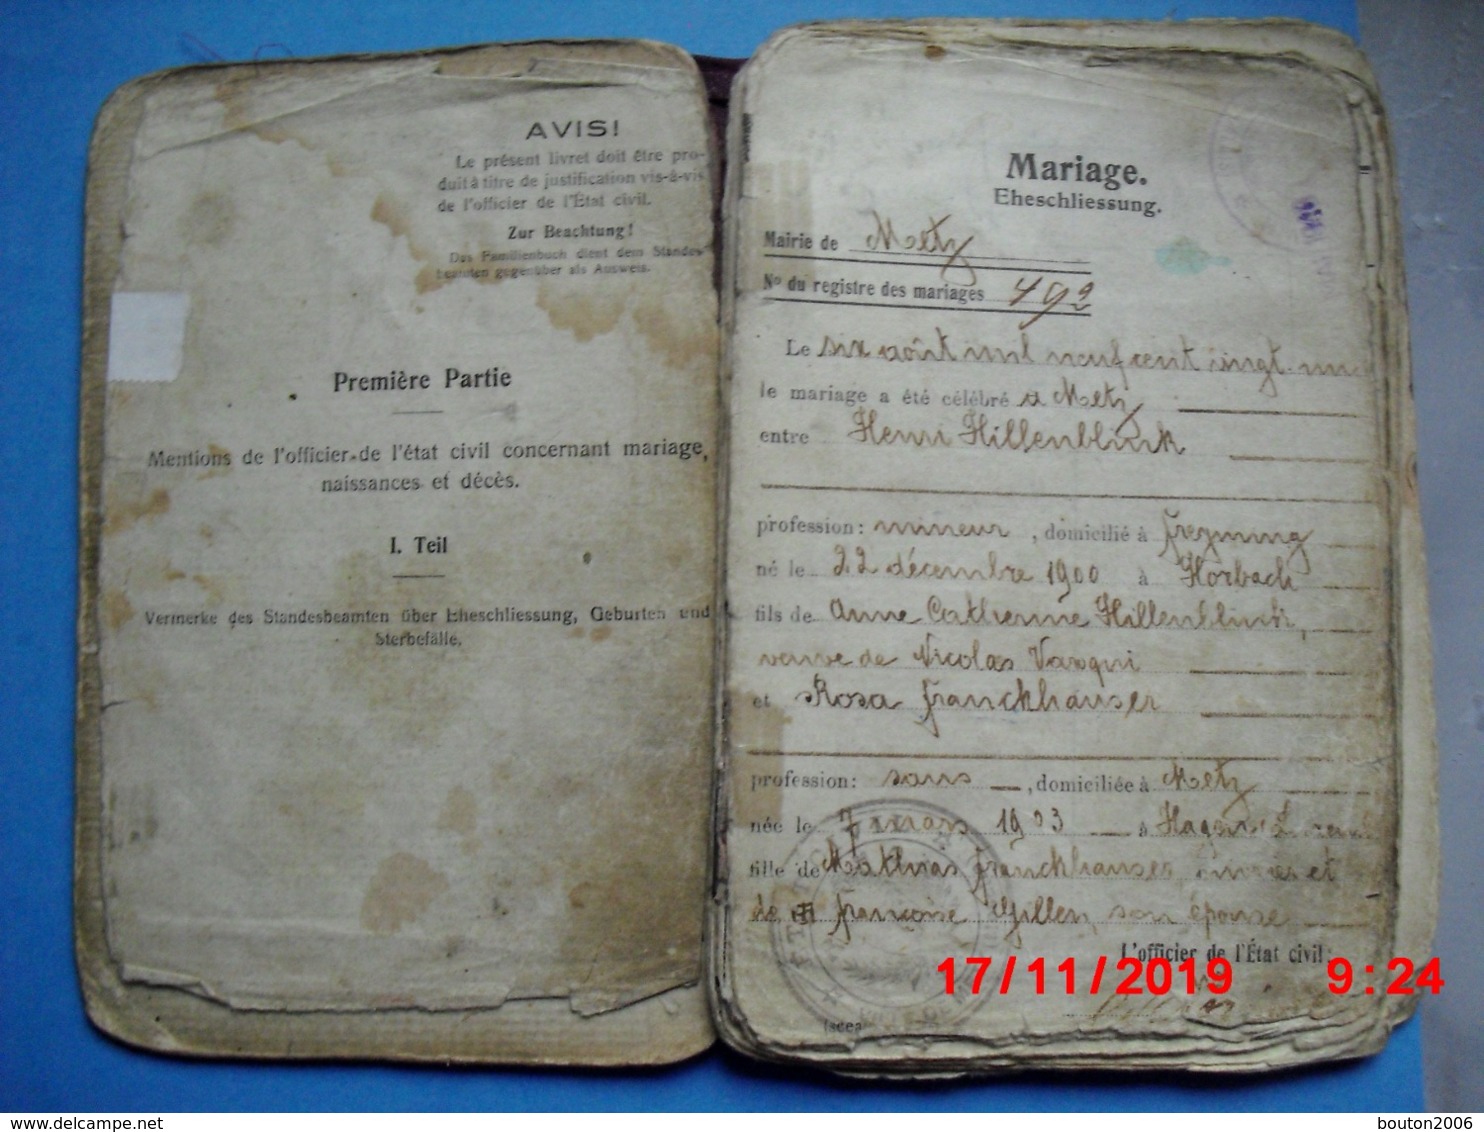 AVIS!
Le présent livret doit être pro-
duit à titre de justification vis-à-vis
de l'officier de l'État civil.
Zur Beachtung!
Das Familienbuch dient dem Standes-
beamten gegenüber als Ausweis.
Première Partie
Mentions de l'officier de l'état civil concernant mariage,
naissances et décès.
I. Teil
Vermerke des Standesbeamten über Eheschliessung, Geburten und
Sterbefälle.
Mariage.
Eheschliessung.
Mairie de Metz
No du registre des mariages 492
Le six août mil neufcent vingt-un
le mariage a été célébré à Metz
entre Henri Hillenblink
profession: mineur, domicilié à Freyming
né le 22 décembre 1900 à Horbach
fils de Anne Catherine Hillenblink,
veuve de Nicolas
et Rosa Franckhauser
profession: sans, domiciliée à Metz
née le 7 mars 1903 à
fille de Mathias Franckhauser, et
de Françoise Gillen, son épouse
L'officier de l'État civil:
17/11/2019 9:24
delcampe.net
bouton2006